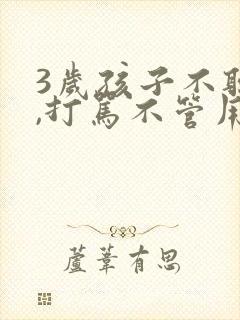 3歲孩子不
,打罵不管
蘆葦有思